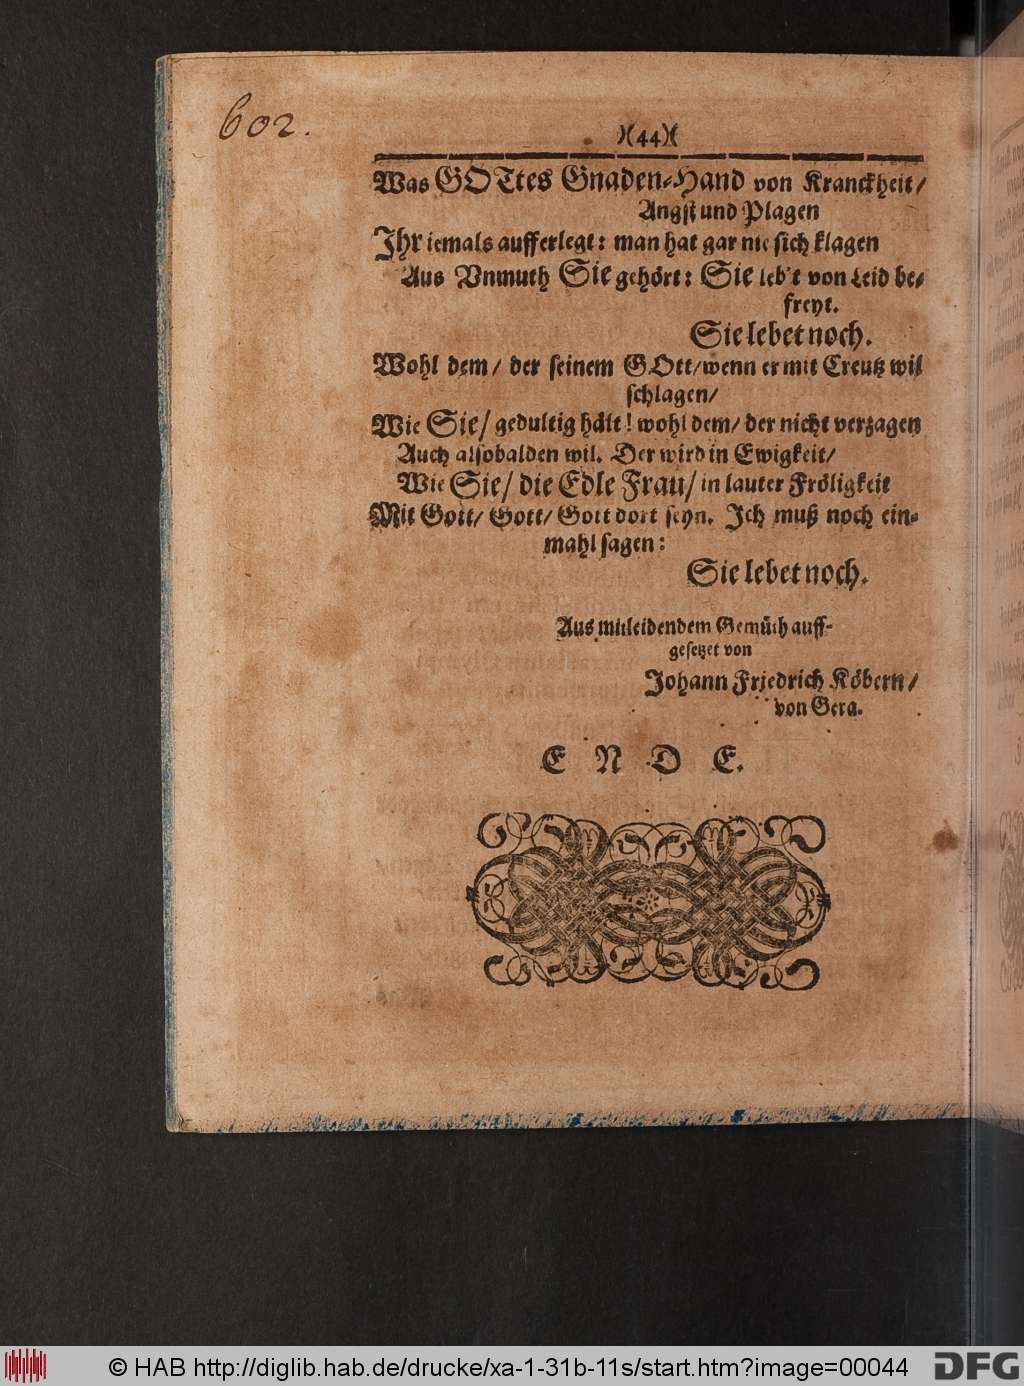 602.
)(44)(
Was GOTtes Gnaden-Hand von Kranckheit/
Angst und Plagen
Ihr iemals aufferlegt: man hat gar nie sich klagen
Aus Vnmuth Sie gehört: Sie leb't von Leid be-
freyt.
Sie lebet noch.
Wohl dem/ der seinem GOtt/wenn er mit Creutz wil
schlagen/
Wie Sie/ gedultig hält! wohl dem/ der nicht verzagen
Auch alsobalden wil. Der wird in Ewigkeit/
Wie Sie/ die Edle Frau/ in lauter Fröligkeit
Mit Gott/ Gott/ Gott dort seyn. Ich muß noch ein-
mahl sagen:
Sie lebet noch.
Aus mitleidendem Gemüth auff-
gesetzet von
Johann Friedrich Köbern/
von Gera.
E N D E.
© HAB http://diglib.hab.de/drucke/xa-1-31b-11s/start.htm?image=00044
DFG